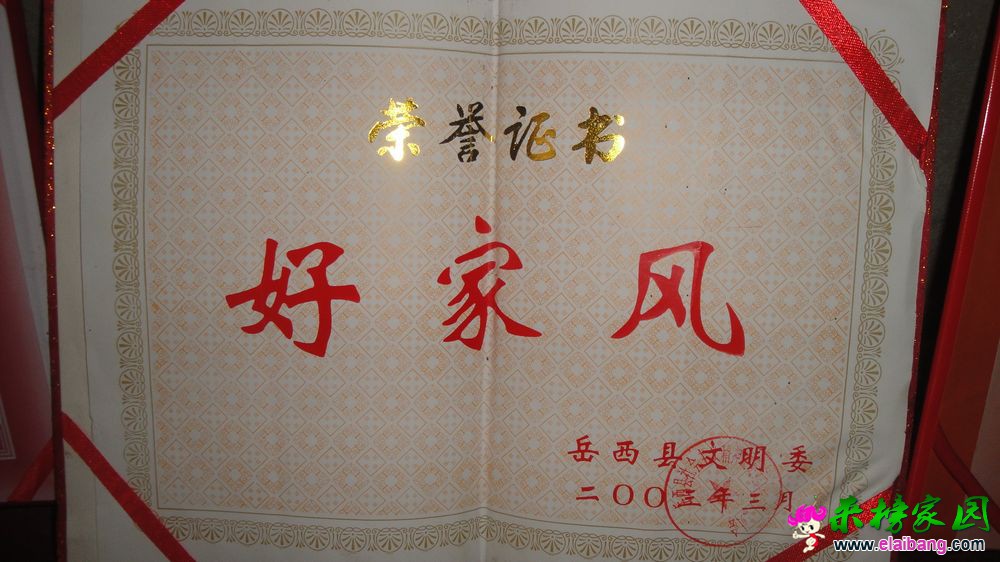 荣誉证书
好家风
岳西县文明委
二〇〇三年三月
来榜家园
www.elaibang.com